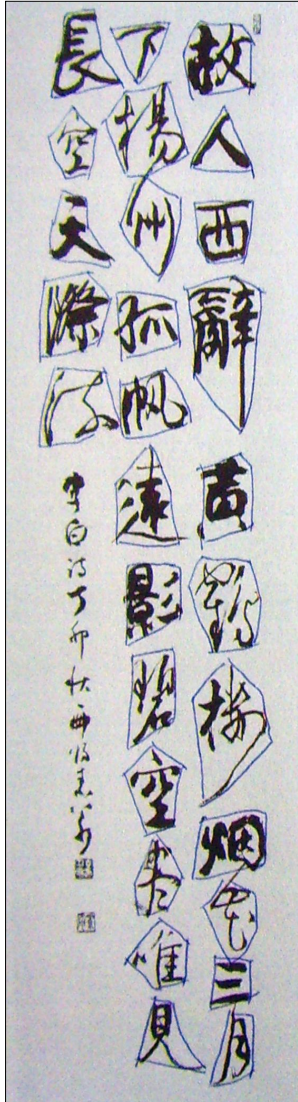 故人西辭黃鶴樓烟花三月
下揚州孤帆遠影碧空盡唯見
長空天際流
李白詩丁卯秋